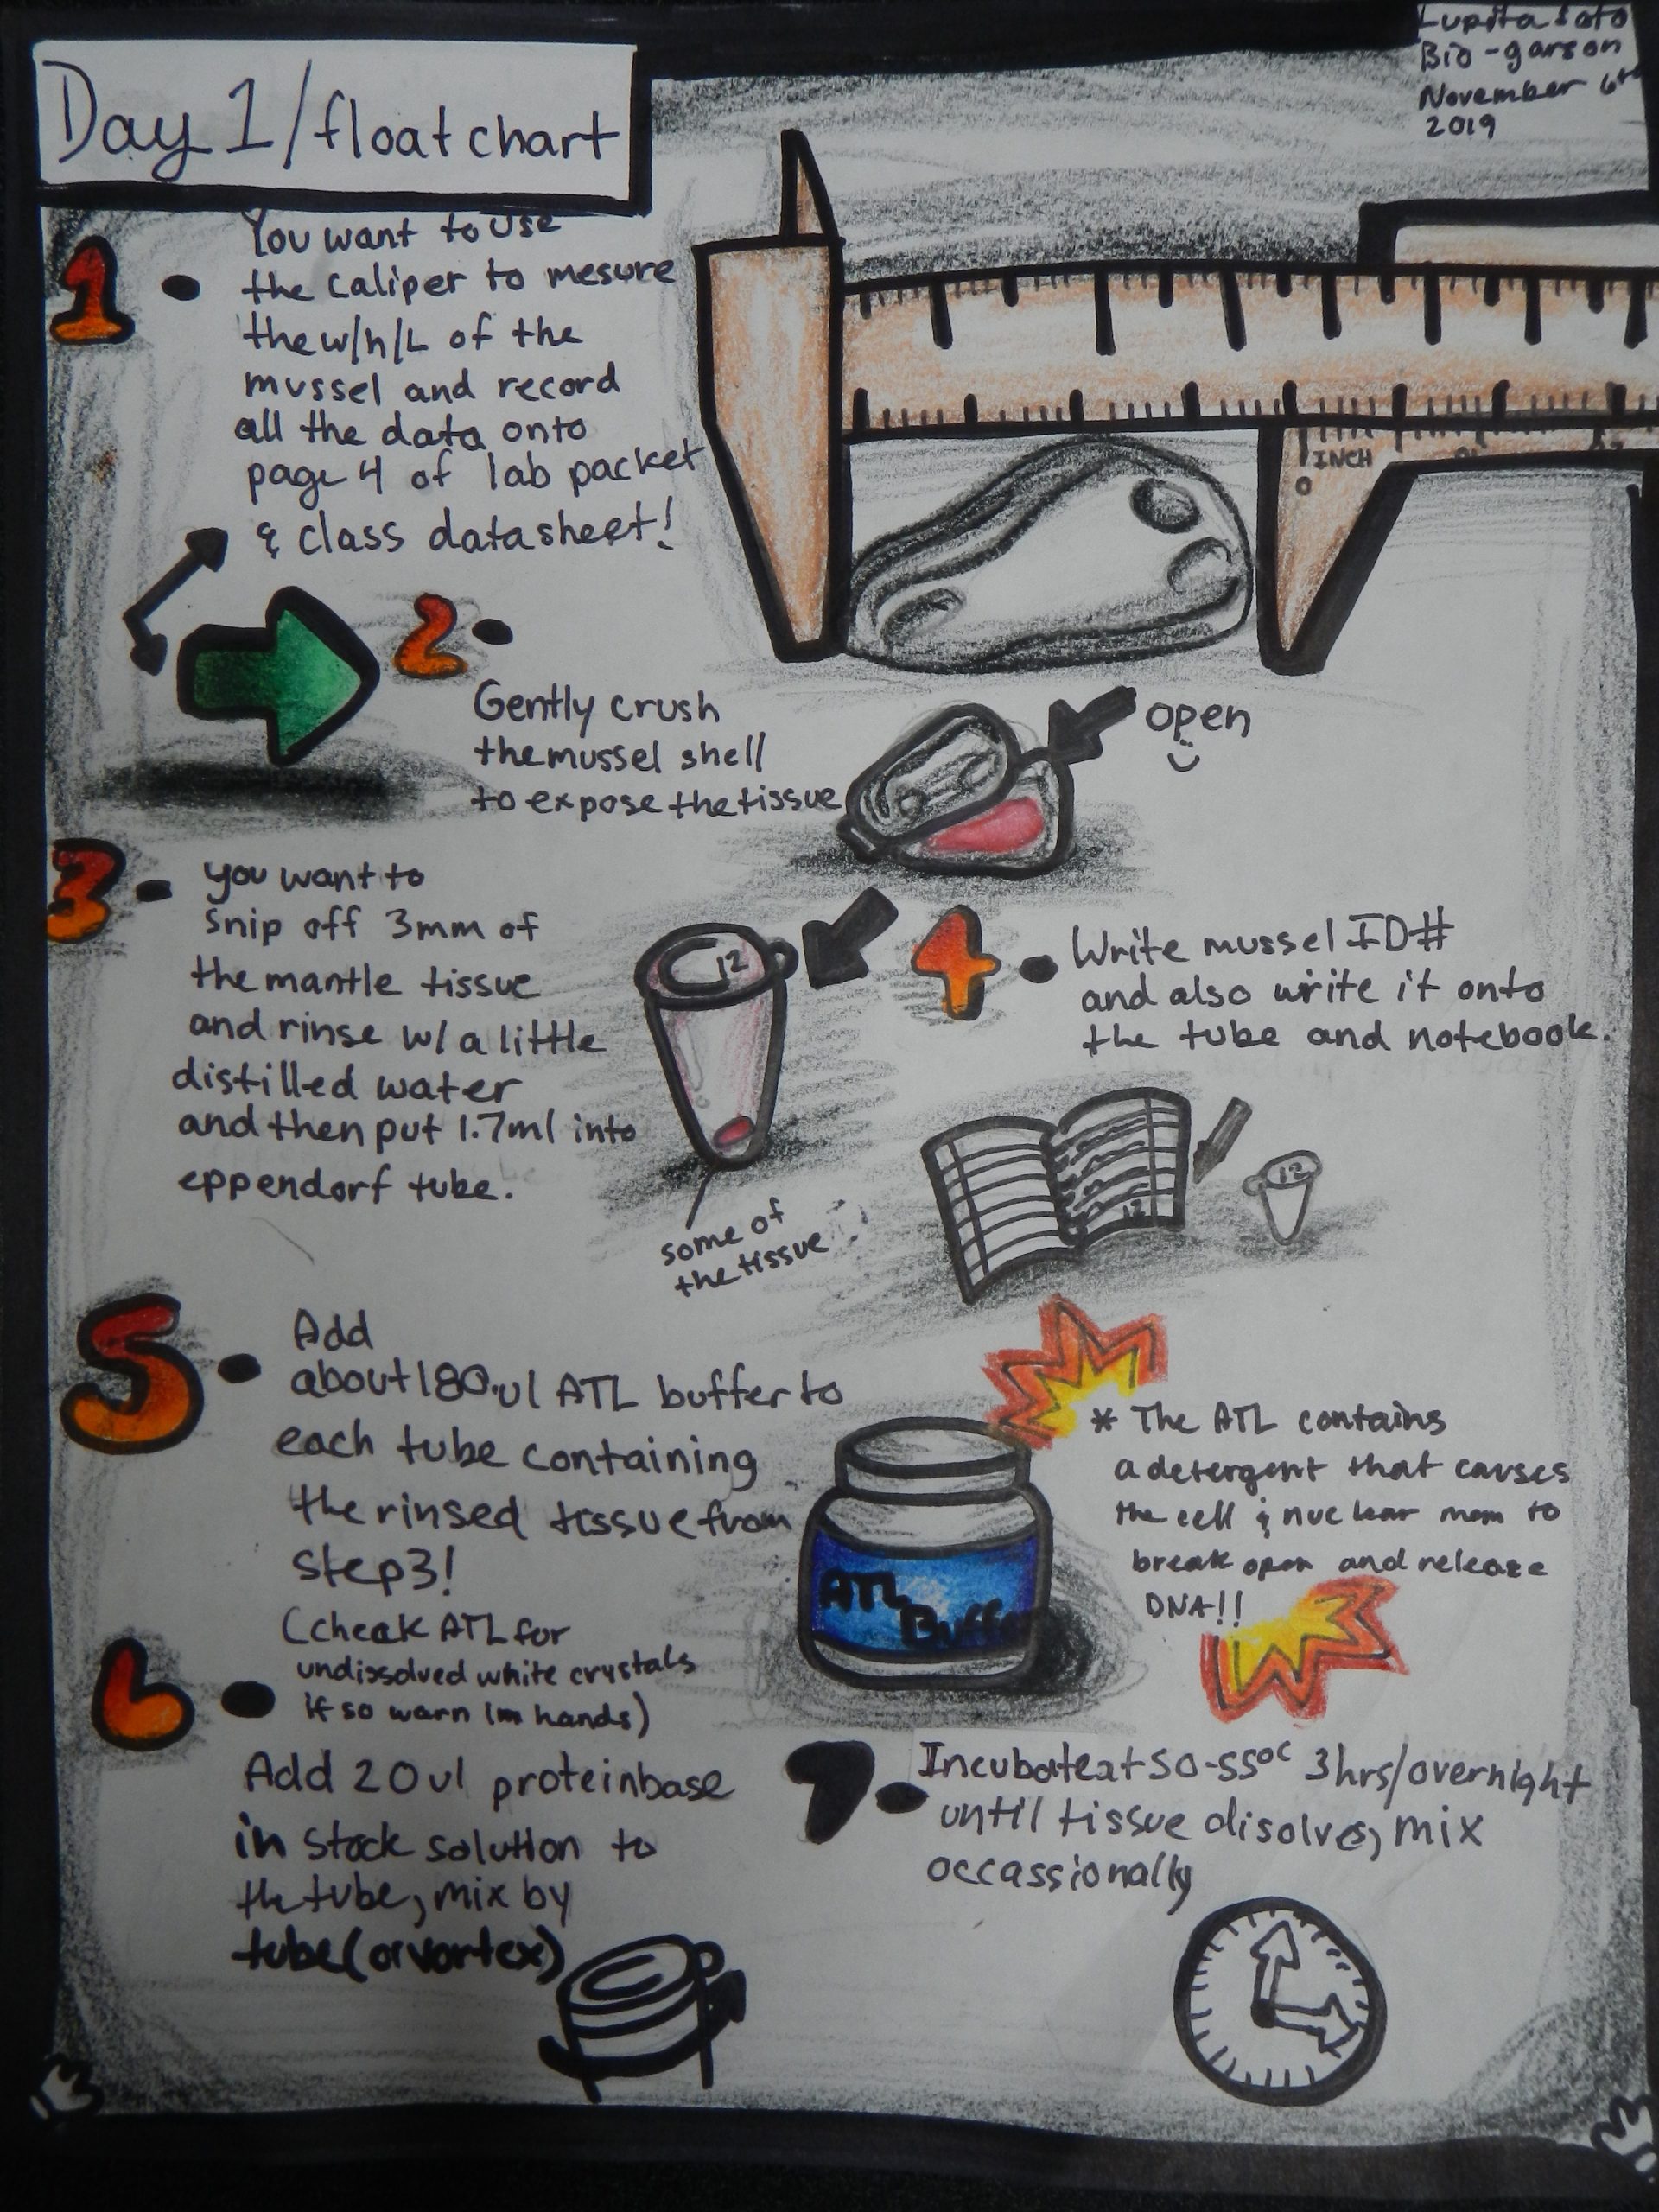 Day 1/float chart
Lupita Soto
Bio - garson
November 6th
2019
1. You want to use
the caliper to mesure
the w/h/L of the
mussel and record
all the data onto
page 4 of lab packet
& class datasheet!
INCH
0
2. Gently crush
the mussel shell
to expose the tissue
open
3. you want to
snip off 3mm of
the mantle tissue
and rinse w/ a little
distilled water
and then put 1.7ml into
eppendorf tube.
12
some of
the tissue
4. Write mussel ID#
and also write it onto
the tube and notebook.
12
12
5. Add
about 180 ul ATL buffer to
each tube containing
the rinsed tissue from
step3!
(cheak ATL for
undissolved white crystals
if so warn im hands)
ATL
Buffe
* The ATL contains
a detergent that causes
the cell & nuclear mem to
break open and release
DNA!!
6. Add 20 ul proteinbase
in stock solution to
the tube, mix by
tube (or vortex)
7. Incubate at 50-55°C 3hrs/overnight
until tissue disolves, mix
occassionally